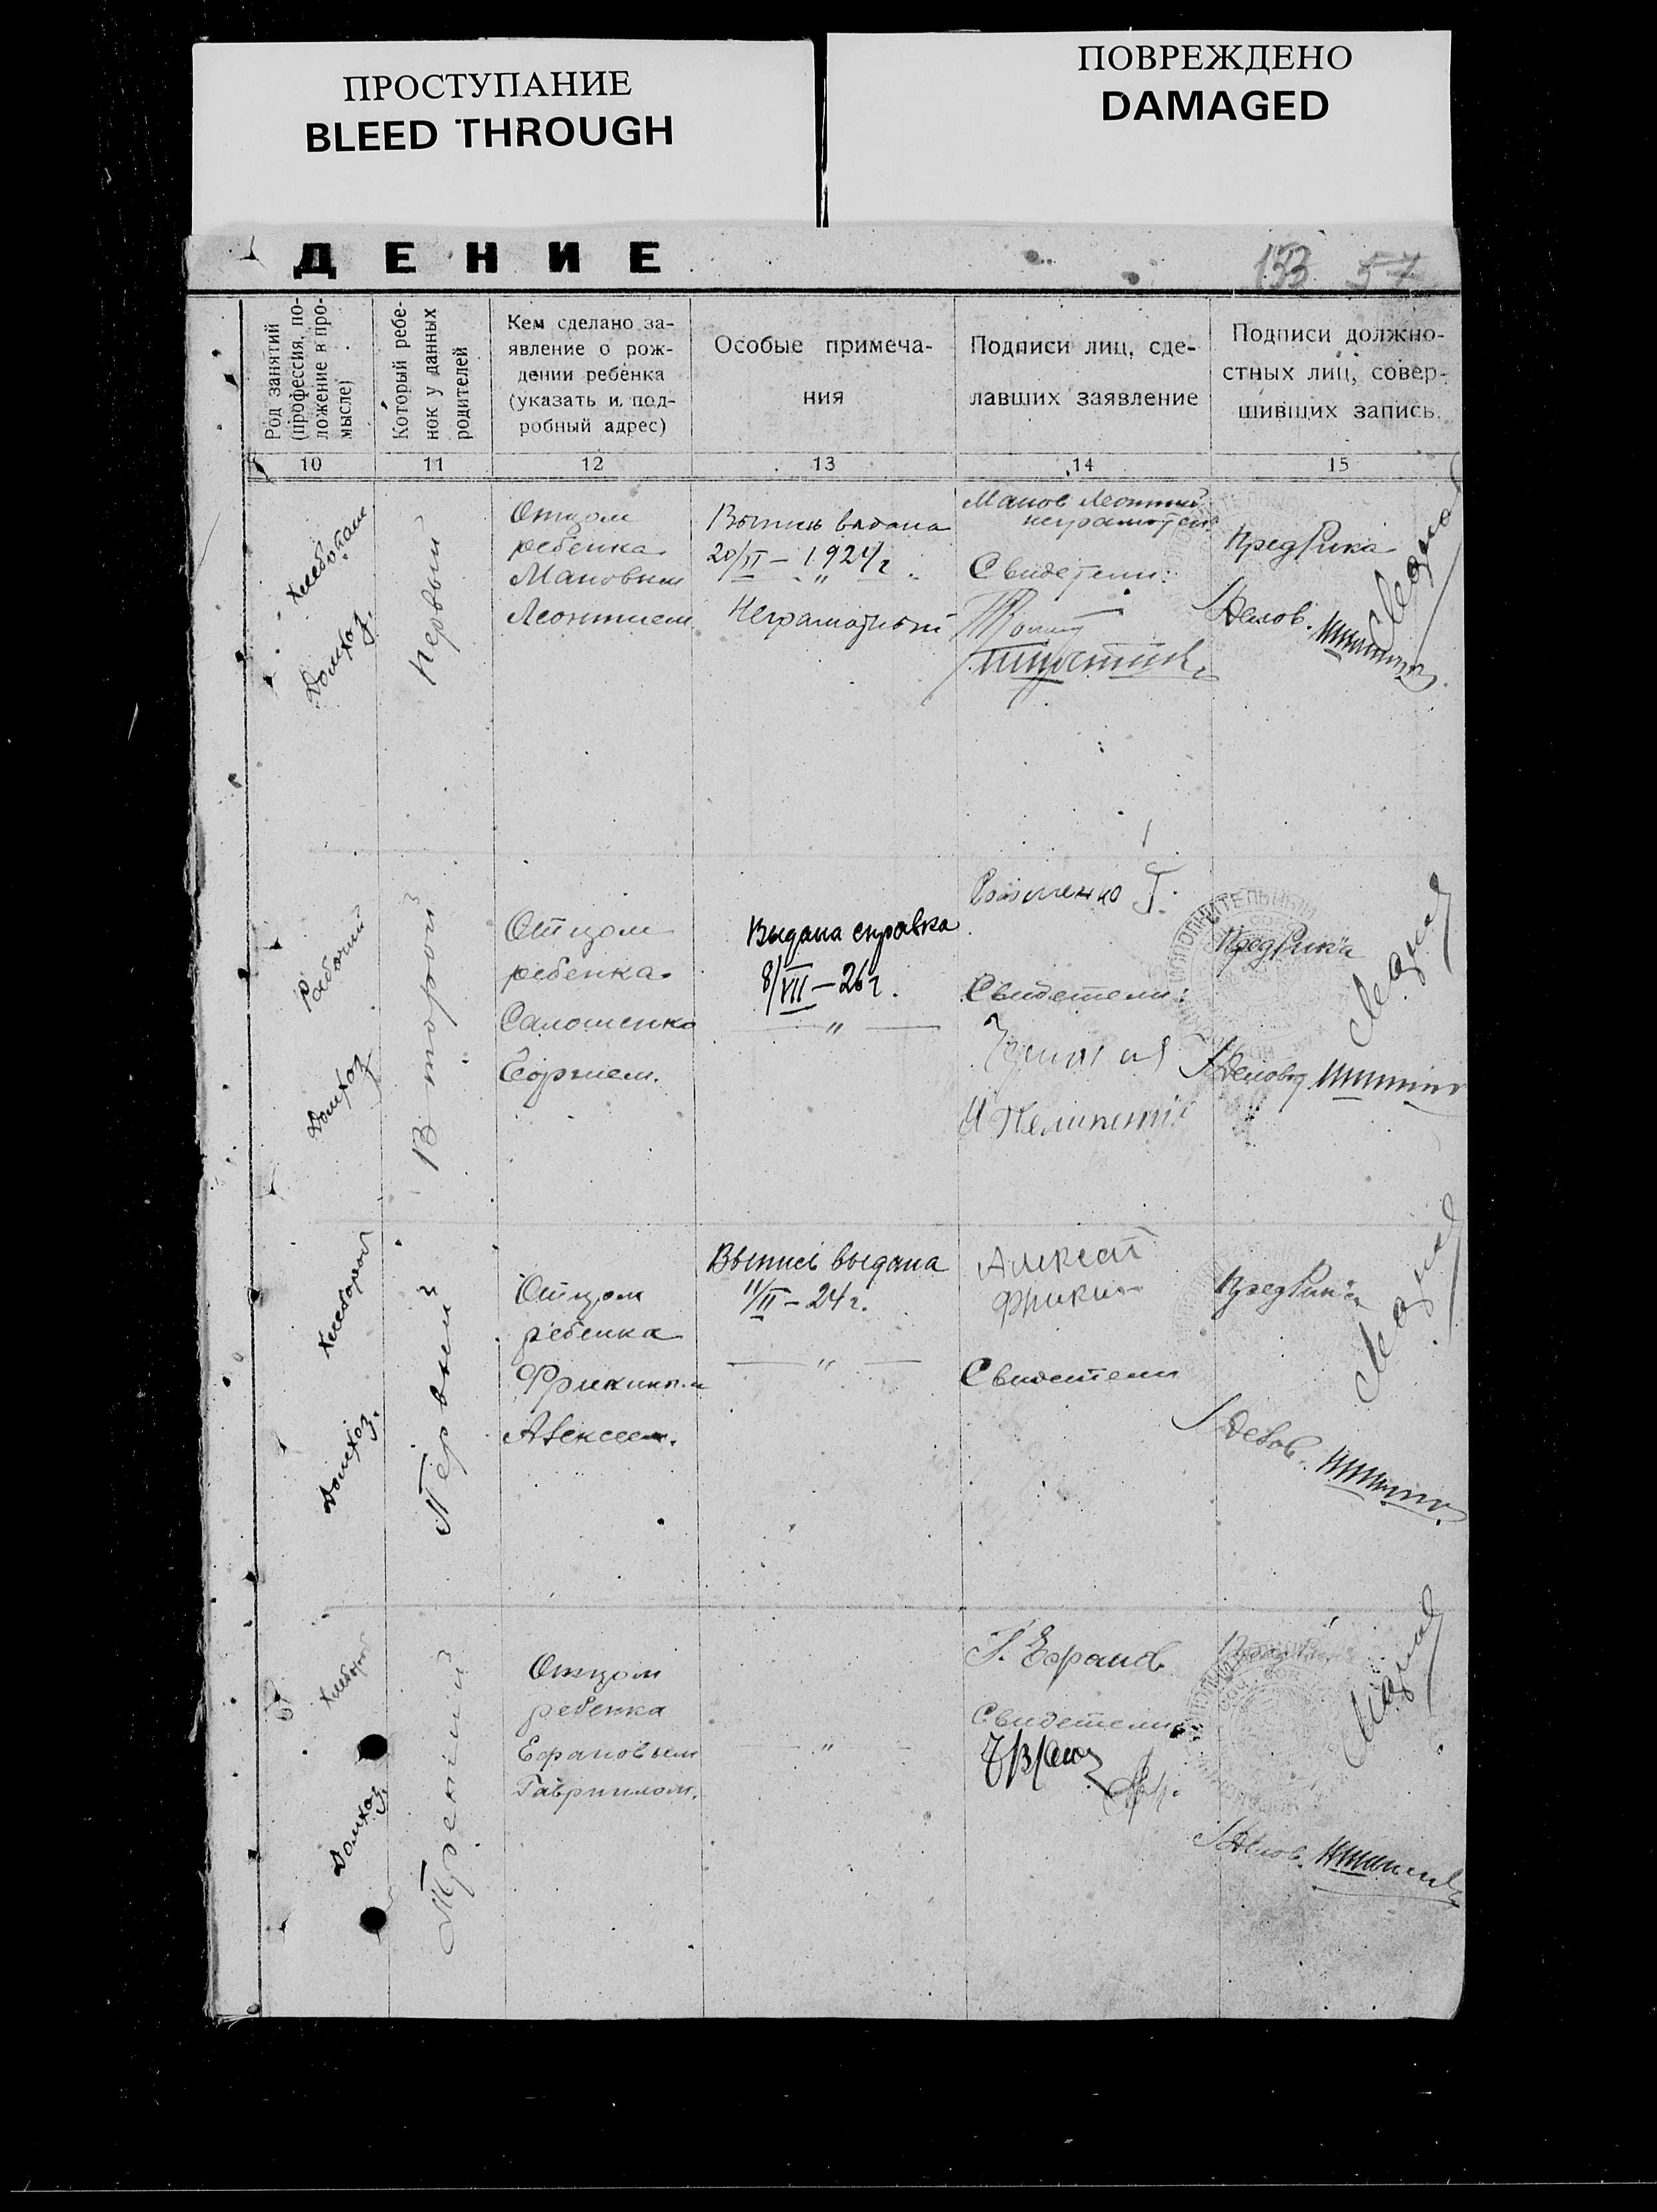 ПРОСТУПАНИЕ
BLEED THROUGH
ПОВРЕЖДЕНО
DAMAGED
ДЕНИЕ
153 57
Род занятий
(профессия, по-
ложение в про-
мысле)
Который ребе-
нок у данных
родителей
Кем сделано за-
явление о рож-
дении ребенка
(указать и под-
робный адрес)
Особые примеча-
ния
Подписи лиц, сде-
лавших заявление
Подписи должно-
стных лиц, совер-
шивших запись.
10
11
12
13
14
15
Хлебопаш
Домхоз.
Первый
Отцом
ребенка
Мановым
Леонтием
Выпись выдана
20/II – 1924 г.
"
Неграмотный
Манов Леонтий
неграмотен
Свидетели:
ПредРика
Делов.
Рабочий
Домхоз
Второй
Отцом
ребенка
Салошенко
Георгием.
Выдана справка
8/VII – 26 г.
"
Г.
Свидетели:
ПредРика
Деловод
Хлебороб
Домхоз.
Первый
Отцом
ребенка
Фрикиным
Алексеем.
Выпись выдана
11/II – 24 г.
"
Алексей
Фрикин
Свидетели
ПредРика
Делов.
Хлебороб
Домхоз.
Третий
Отцом
ребенка
Ефановым
Гавриилом.
"
Г. Ефанов
Свидетели:
Делов.